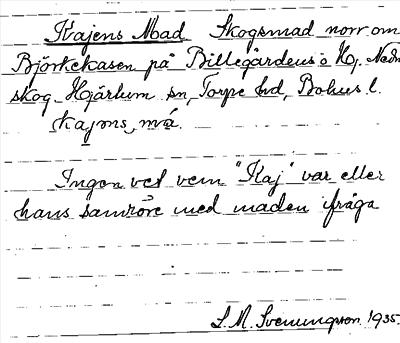 Kajens Mad Skogsmad norr om
Björkekasen på Billegårdens o Hj. Nedre
skog. Hjärtum sn, Torpe hd, Bohus l.
kajɒns, má.
Ingen vet vem "Kaj" var eller
hans samröre med maden ifråga
S. M. Svenungsson 1935.